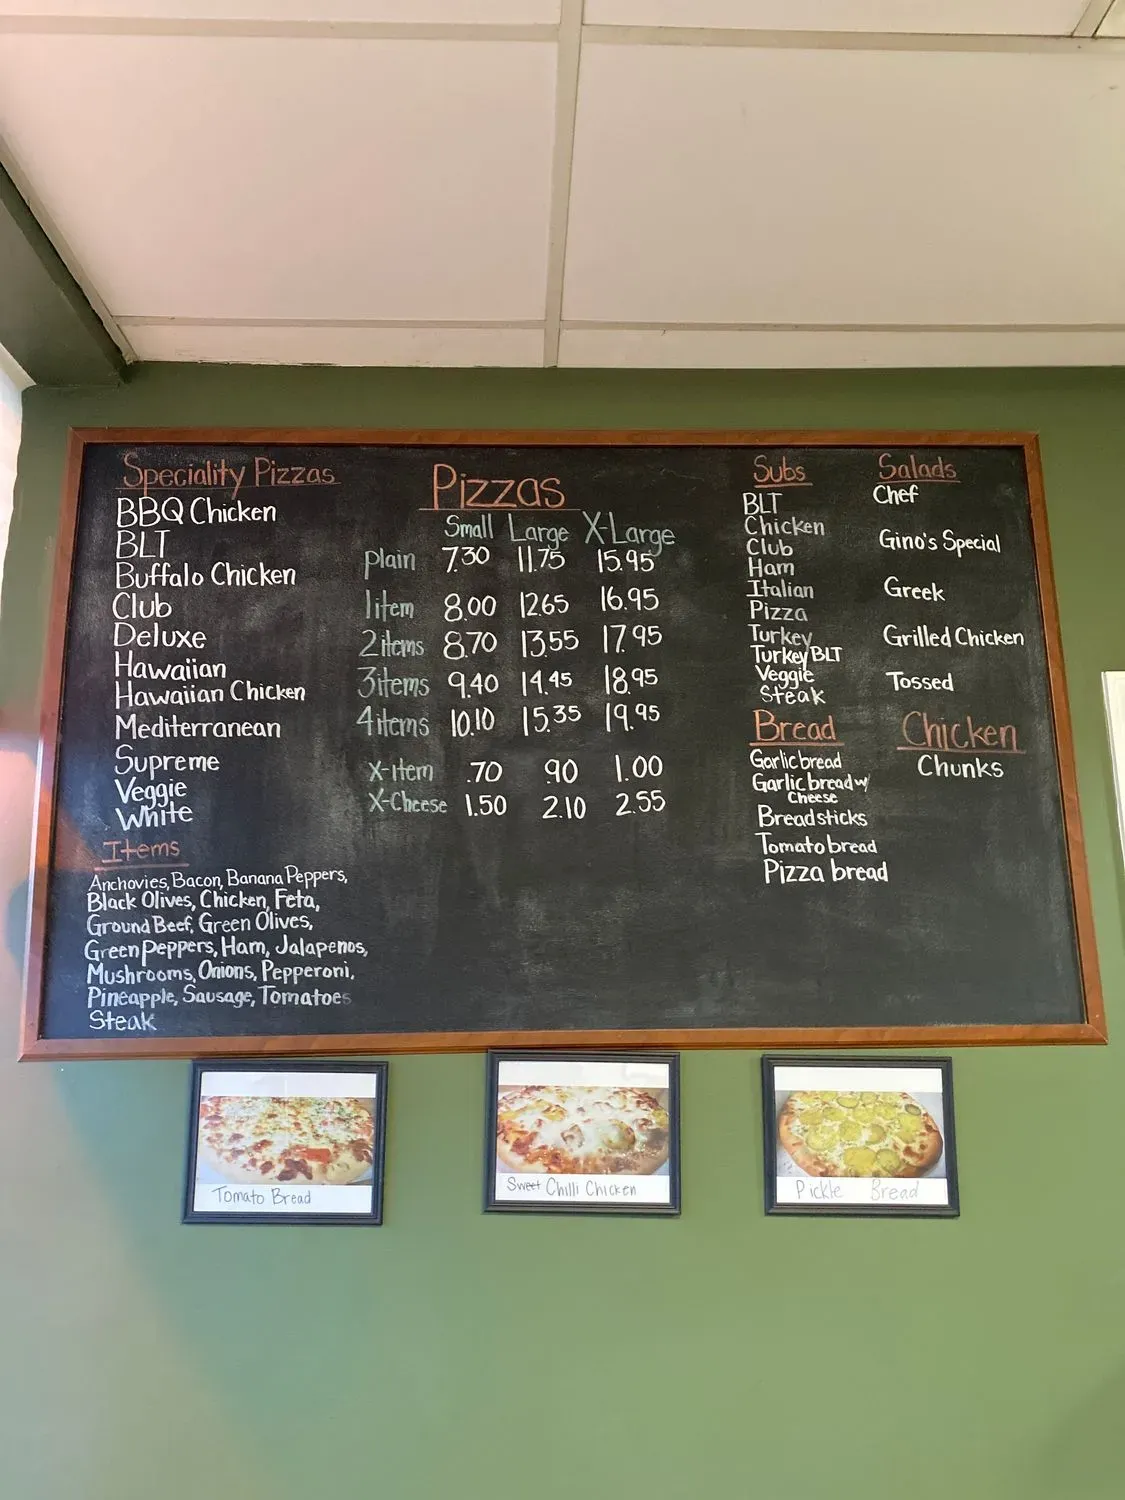 Speciality Pizzas
BBQ Chicken
BLT
Buffalo Chicken
Club
Deluxe
Hawaiian
Hawaiian Chicken
Mediterranean
Supreme
Veggie
White
Items
Anchovies, Bacon, Banana Peppers,
Black Olives, Chicken, Feta,
Ground Beef, Green Olives,
Green peppers, Ham, Jalapenos,
Mushrooms, Onions, Pepperoni,
Pineapple, Sausage, Tomatoes
Steak
Pizzas
Small Large X-Large
plain 7.30 11.75 15.95
1 item 8.00 1265 16.95
2 items 8.70 13.55 17.95
3 items 9.40 14.45 18.95
4 items 10.10 15.35 19.95
X-item .70 .90 1.00
X-Cheese 1.50 2.10 2.55
Subs
BLT
Chicken
Club
Ham
Italian
Pizza
Turkey
Turkey BLT
Veggie
Steak
Bread
Garlic bread
Garlic bread w/
Cheese
Breadsticks
Tomato bread
Pizza bread
Salads
Chef
Gino's Special
Greek
Grilled Chicken
Tossed
Chicken
Chunks
Tomato Bread
Sweet Chilli Chicken
Pickle Bread